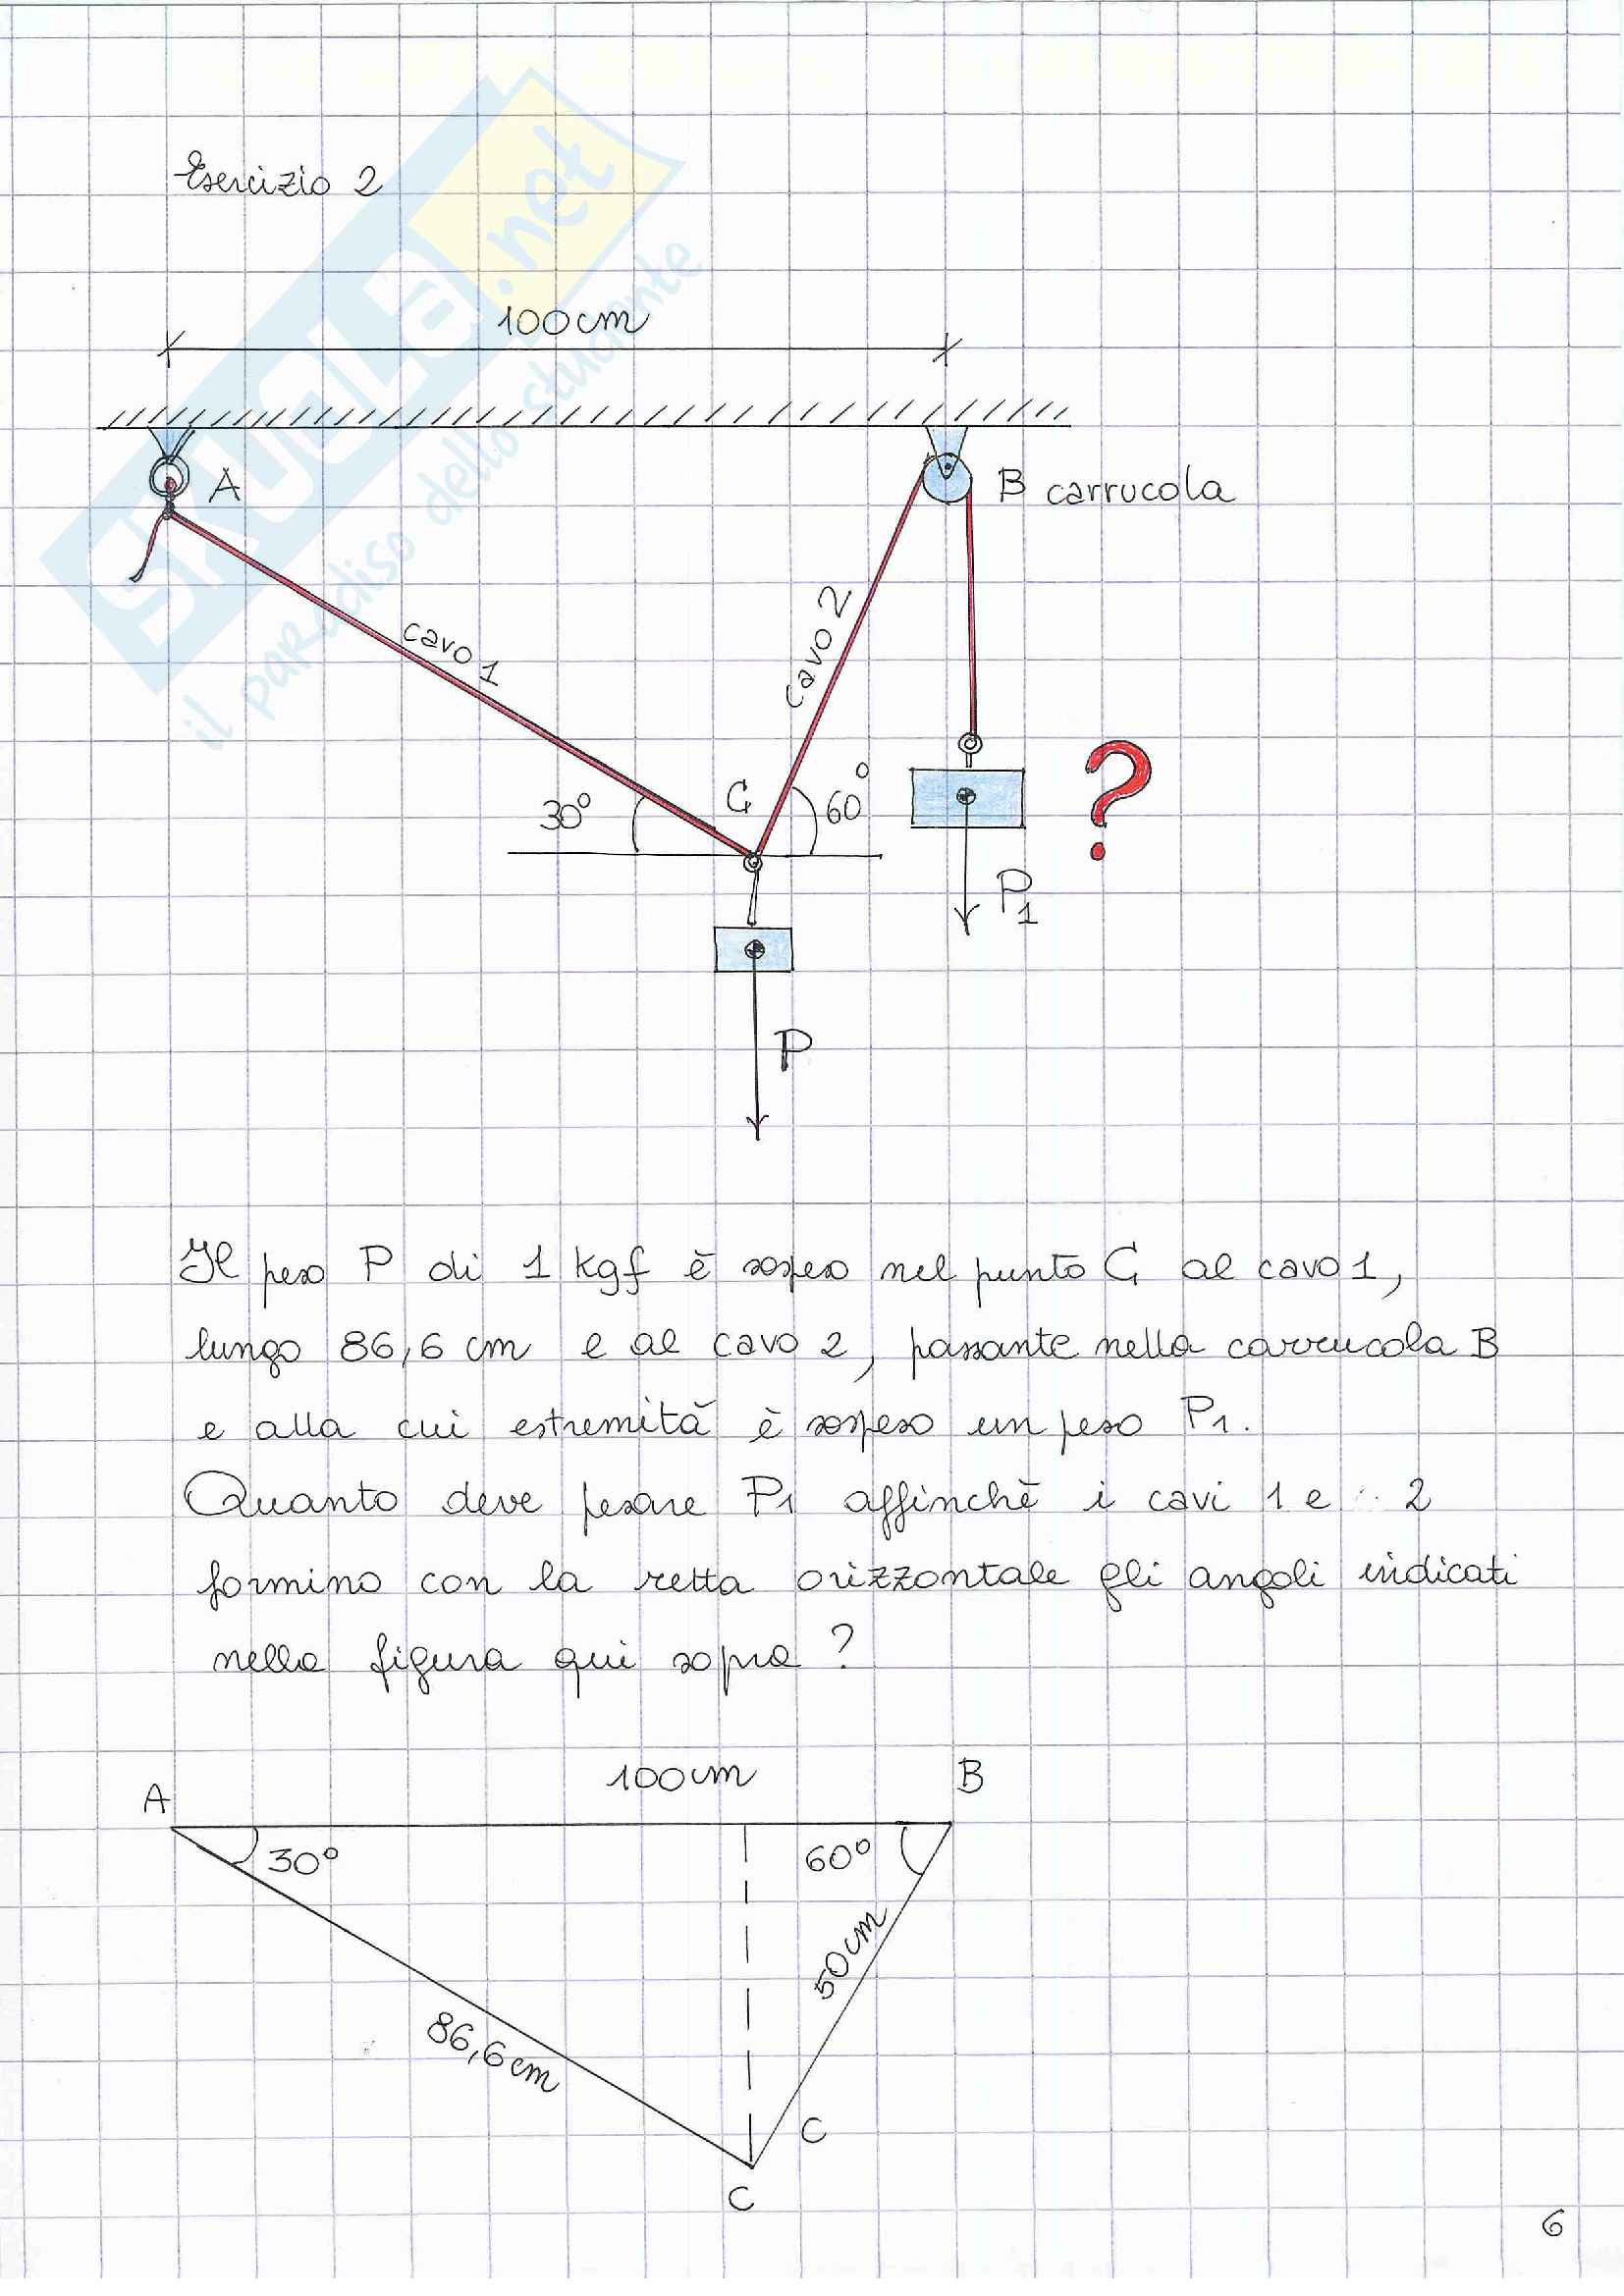 Esercizio 2
SKUOLA.net
il paradiso dello studente
100cm
A
B carrucola
cavo 1
cavo 2
C
30°
60°
P1
?
P
Il peso P di 1 kgf è sospeso nel punto C al cavo 1,
lungo 86,6 cm e al cavo 2, passante nella carrucola B
e alla cui estremità è sospeso un peso P1.
Quanto deve pesare P1 affinchè i cavi 1 e 2
formino con la retta orizzontale gli angoli indicati
nella figura qui sopra ?
A
100cm
B
30°
60°
50cm
86,6cm
C
C
6